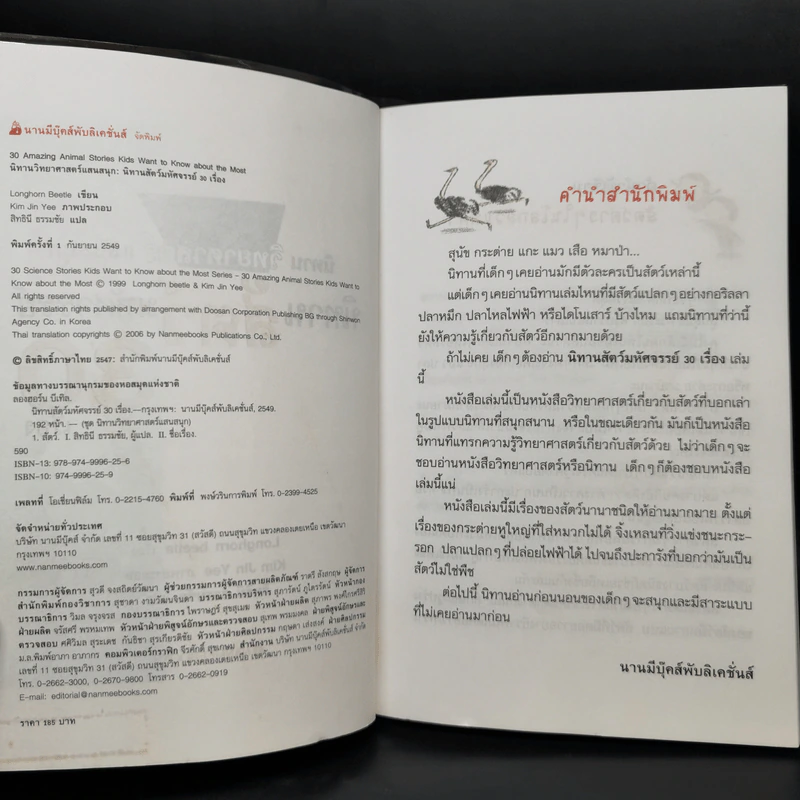 นานมีบุ๊คส์พับลิเคชั่นส์ จัดพิมพ์
30 Amazing Animal Stories Kids Want to Know about the Most
นิทานวิทยาศาสตร์แสนสนุก: นิทานสัตว์มหัศจรรย์ 30 เรื่อง
Longhorn Beetle เขียน
Kim Jin Yee ภาพประกอบ
สิทธินี ธรรมชัย แปล
พิมพ์ครั้งที่ 1 กันยายน 2549
30 Science Stories Kids Want to Know about the Most Series – 30 Amazing Animal Stories Kids Want to
Know about the Most © 1999 Longhorn beetle & Kim Jin Yee
All rights reserved
This translation rights published by arrangement with Doosan Corporation Publishing BG through Shinwon
Agency Co. in Korea
Thai translation copyrights © 2006 by Nanmeebooks Publications Co., Ltd.
© ลิขสิทธิ์ภาษาไทย 2547: สำนักพิมพ์นานมีบุ๊คส์พับลิเคชั่นส์
ข้อมูลทางบรรณานุกรมของหอสมุดแห่งชาติ
ลองฮอร์น บีเทิล.
นิทานสัตว์มหัศจรรย์ 30 เรื่อง.—กรุงเทพฯ: นานมีบุ๊คส์พับลิเคชั่นส์, 2549.
192 หน้า. — (ชุด นิทานวิทยาศาสตร์แสนสนุก)
1. สัตว์. I. สิทธินี ธรรมชัย, ผู้แปล. II. ชื่อเรื่อง.
590
ISBN-13: 978-974-9996-25-6
ISBN-10: 974-9996-25-9
เพลทที่ โอเชี่ยนฟิล์ม โทร. 0-2215-4760 พิมพ์ที่ พงษ์วรินการพิมพ์ โทร. 0-2399-4525
จัดจำหน่ายทั่วประเทศ
บริษัท นานมีบุ๊คส์ จำกัด เลขที่ 11 ซอยสุขุมวิท 31 (สวัสดี) ถนนสุขุมวิท แขวงคลองเตยเหนือ เขตวัฒนา
กรุงเทพฯ 10110
www.nanmeebooks.com
กรรมการผู้จัดการ สุวดี จงสถิตย์วัฒนา ผู้ช่วยกรรมการผู้จัดการสายผลิตภัณฑ์ ราตรี สังสกฤษ ผู้จัดการ
สำนักพิมพ์กองวิชาการ สุชาดา งามวัฒนจินดา บรรณาธิการบริหาร สุภารัตน์ ภูไตรรัตน์ หัวหน้ากอง
บรรณาธิการ วิมล จรุงจรส กองบรรณาธิการ ไพราษฎร์ สุขสุเมฆ หัวหน้าฝ่ายผลิต สุภาพร พงศ์ไกรศิริ
ฝ่ายผลิต จรัสศรี พรหมเทพ หัวหน้าฝ่ายพิสูจน์อักษรและตรวจสอบ สุเทพ พรมมงคล ฝ่ายพิสูจน์อักษรและ
ตรวจสอบ ศศิวิมล สุระเดช กันธิชา สุรเกียรติชัย หัวหน้าฝ่ายศิลปกรรม กฤษดา เส่งสงค์ ฝ่ายศิลปกรรม
ม.ล.พิมพ์อาภา อาภากร คอมพิวเตอร์กราฟิก จีรศักดิ์ สุขเกษม สำนักงาน บริษัท นานมีบุ๊คส์ จำกัด
เลขที่ 11 ซอยสุขุมวิท 31 (สวัสดี) ถนนสุขุมวิท แขวงคลองเตยเหนือ เขตวัฒนา กรุงเทพฯ 10110
โทร. 0-2662-3000, 0-2670-9800 โทรสาร 0-2662-0919
E-mail: editorial@nanmeebooks.com
ราคา 185 บาท
คำนำสำนักพิมพ์
สุนัข กระต่าย แกะ แมว เสือ หมาป่า...
นิทานที่เด็กๆ เคยอ่านมักมีตัวละครเป็นสัตว์เหล่านี้
แต่เด็กๆ เคยอ่านนิทานเล่มไหนที่มีสัตว์แปลกๆ อย่างกอริลลา
ปลาหมึก ปลาไหลไฟฟ้า หรือไดโนเสาร์ บ้างไหม แถมนิทานที่ว่านี้
ยังให้ความรู้เกี่ยวกับสัตว์อีกมากมายด้วย
ถ้าไม่เคย เด็กๆ ต้องอ่าน นิทานสัตว์มหัศจรรย์ 30 เรื่อง เล่ม
นี้
หนังสือเล่มนี้เป็นหนังสือวิทยาศาสตร์เกี่ยวกับสัตว์ที่บอกเล่า
ในรูปแบบนิทานที่สนุกสนาน หรือในขณะเดียวกัน มันก็เป็นหนังสือ
นิทานที่แทรกความรู้วิทยาศาสตร์เกี่ยวกับสัตว์ด้วย ไม่ว่าเด็กๆ จะ
ชอบอ่านหนังสือวิทยาศาสตร์หรือนิทาน เด็กๆ ก็ต้องชอบหนังสือ
เล่มนี้แน่
หนังสือเล่มนี้มีเรื่องของสัตว์นานาชนิดให้อ่านมากมาย ตั้งแต่
เรื่องของกระต่ายหูใหญ่ที่ใส่หมวกไม่ได้ จิ้งเหลนที่วิ่งแข่งชนะกระ-
รอก ปลาแปลกๆ ที่ปล่อยไฟฟ้าได้ ไปจนถึงปะการังที่บอกว่ามันเป็น
สัตว์ไม่ใช่พืช
ต่อไปนี้ นิทานอ่านก่อนนอนของเด็กๆ จะสนุกและมีสาระแบบ
ที่ไม่เคยอ่านมาก่อน
นานมีบุ๊คส์พับลิเคชั่นส์